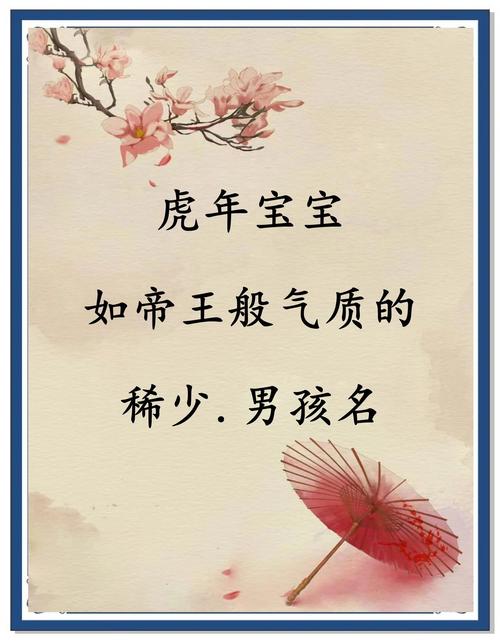 虎年宝宝
如帝王般气质的
稀少.男孩名